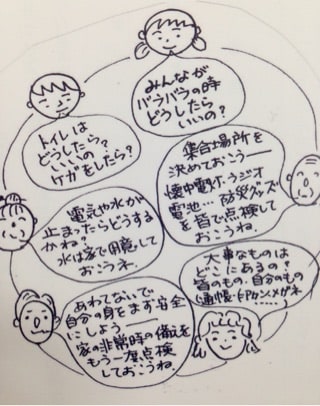 みんなが
バラバラの時
どうしたら
いいの?
トイレは
どうしたら?
いいの
ケガをしたら?
集合場所を
決めておこう――
懐中電灯・ラジオ
電池…防災グッズ
を皆で点検して
おこうね.
電気や水が
止まったらどうする
かね?
水は家で用意して
おこうネ.
大事なものは
どこにあるの?
皆のもの.自分のもの
通帳・
メガネ
あわてないで
自分の身をまず安全
にしよう――
家の非常時の備えを
もう一度点検
しておこうね.